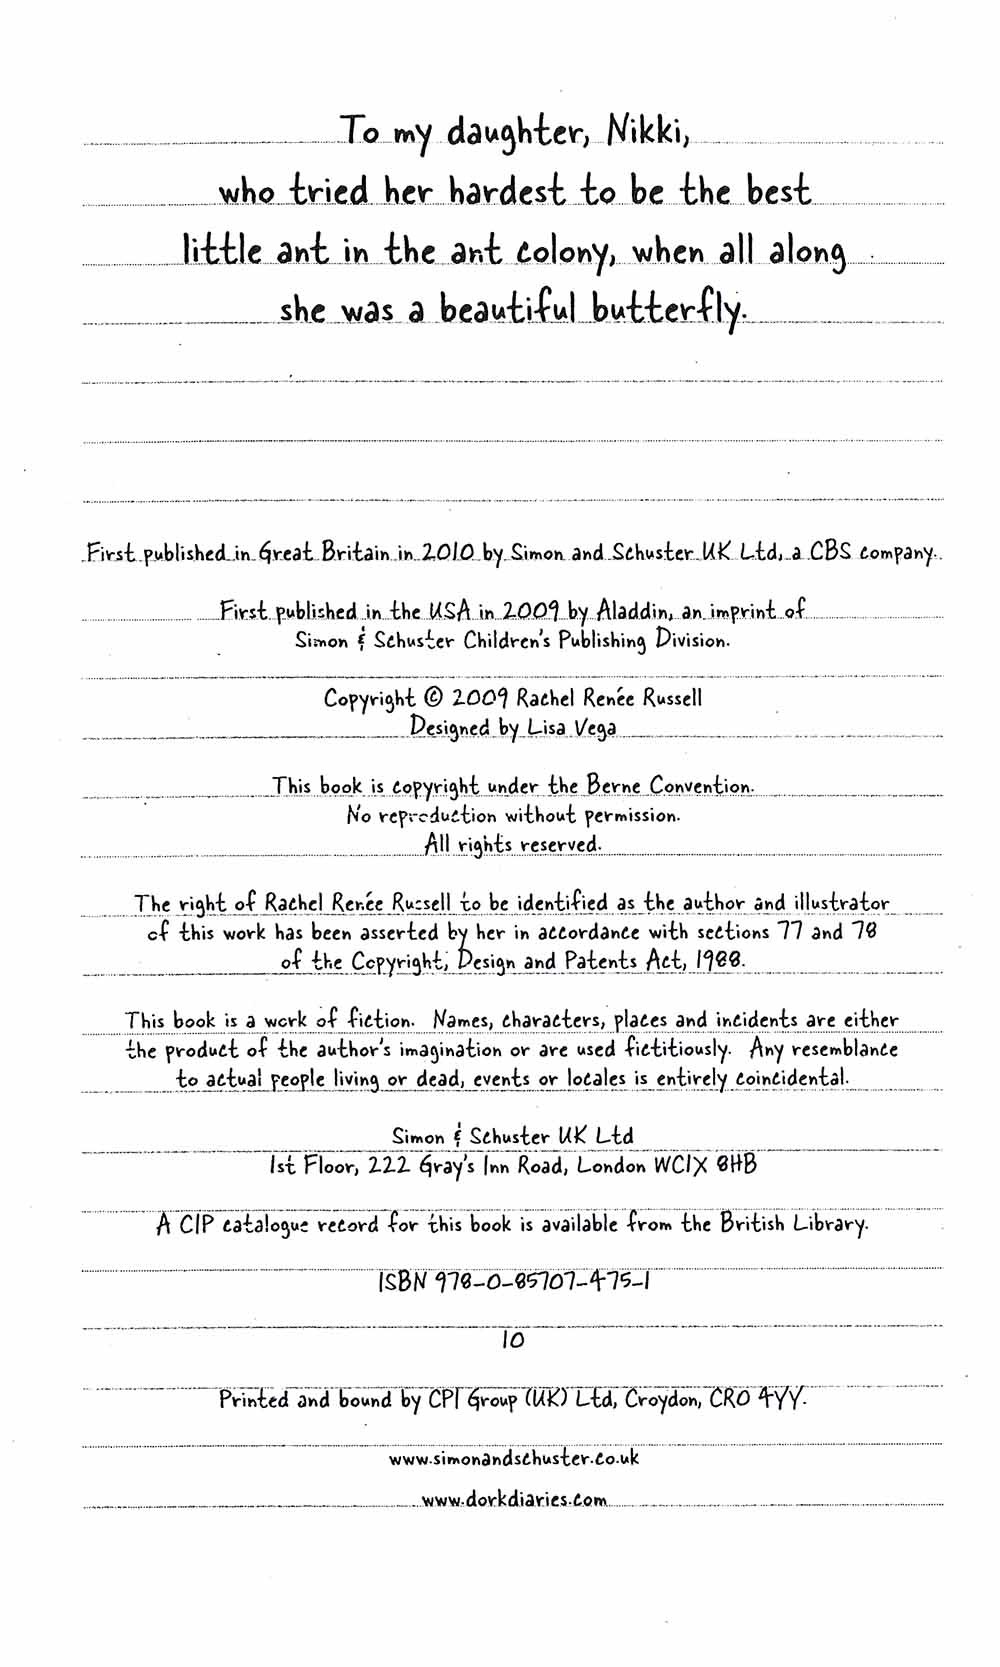 To my daughter, Nikki,
who tried her hardest to be the best
little ant in the ant colony, when all along
she was a beautiful butterfly.
First published in Great Britain in 2010 by Simon and Schuster UK Ltd, a CBS company.
First published in the USA in 2009 by Aladdin, an imprint of
Simon & Schuster Children's Publishing Division.
Copyright © 2009 Rachel Renée Russell
Designed by Lisa Vega
This book is copyright under the Berne Convention.
No reproduction without permission.
All rights reserved.
The right of Rachel Renée Russell to be identified as the author and illustrator
of this work has been asserted by her in accordance with sections 77 and 78
of the Copyright, Design and Patents Act, 1988.
This book is a work of fiction. Names, characters, places and incidents are either
the product of the author's imagination or are used fictitiously. Any resemblance
to actual people living or dead, events or locales is entirely coincidental.
Simon & Schuster UK Ltd
1st Floor, 222 Gray's Inn Road, London WC1X 8HB
A CIP catalogue record for this book is available from the British Library.
ISBN 978-0-85707-475-1
10
Printed and bound by CPI Group (UK) Ltd, Croydon, CR0 4YY.
www.simonandschuster.co.uk
www.dorkdiaries.com